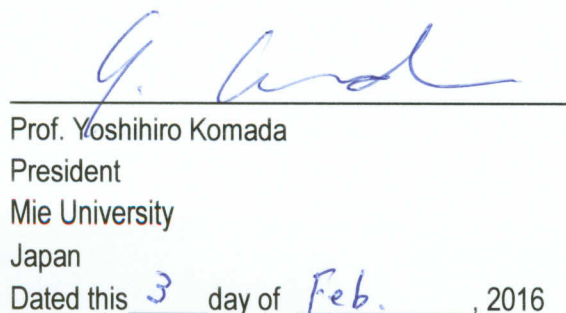 Prof. Yoshihiro Komada
President
Mie University
Japan
Dated this 3 day of Feb. , 2016